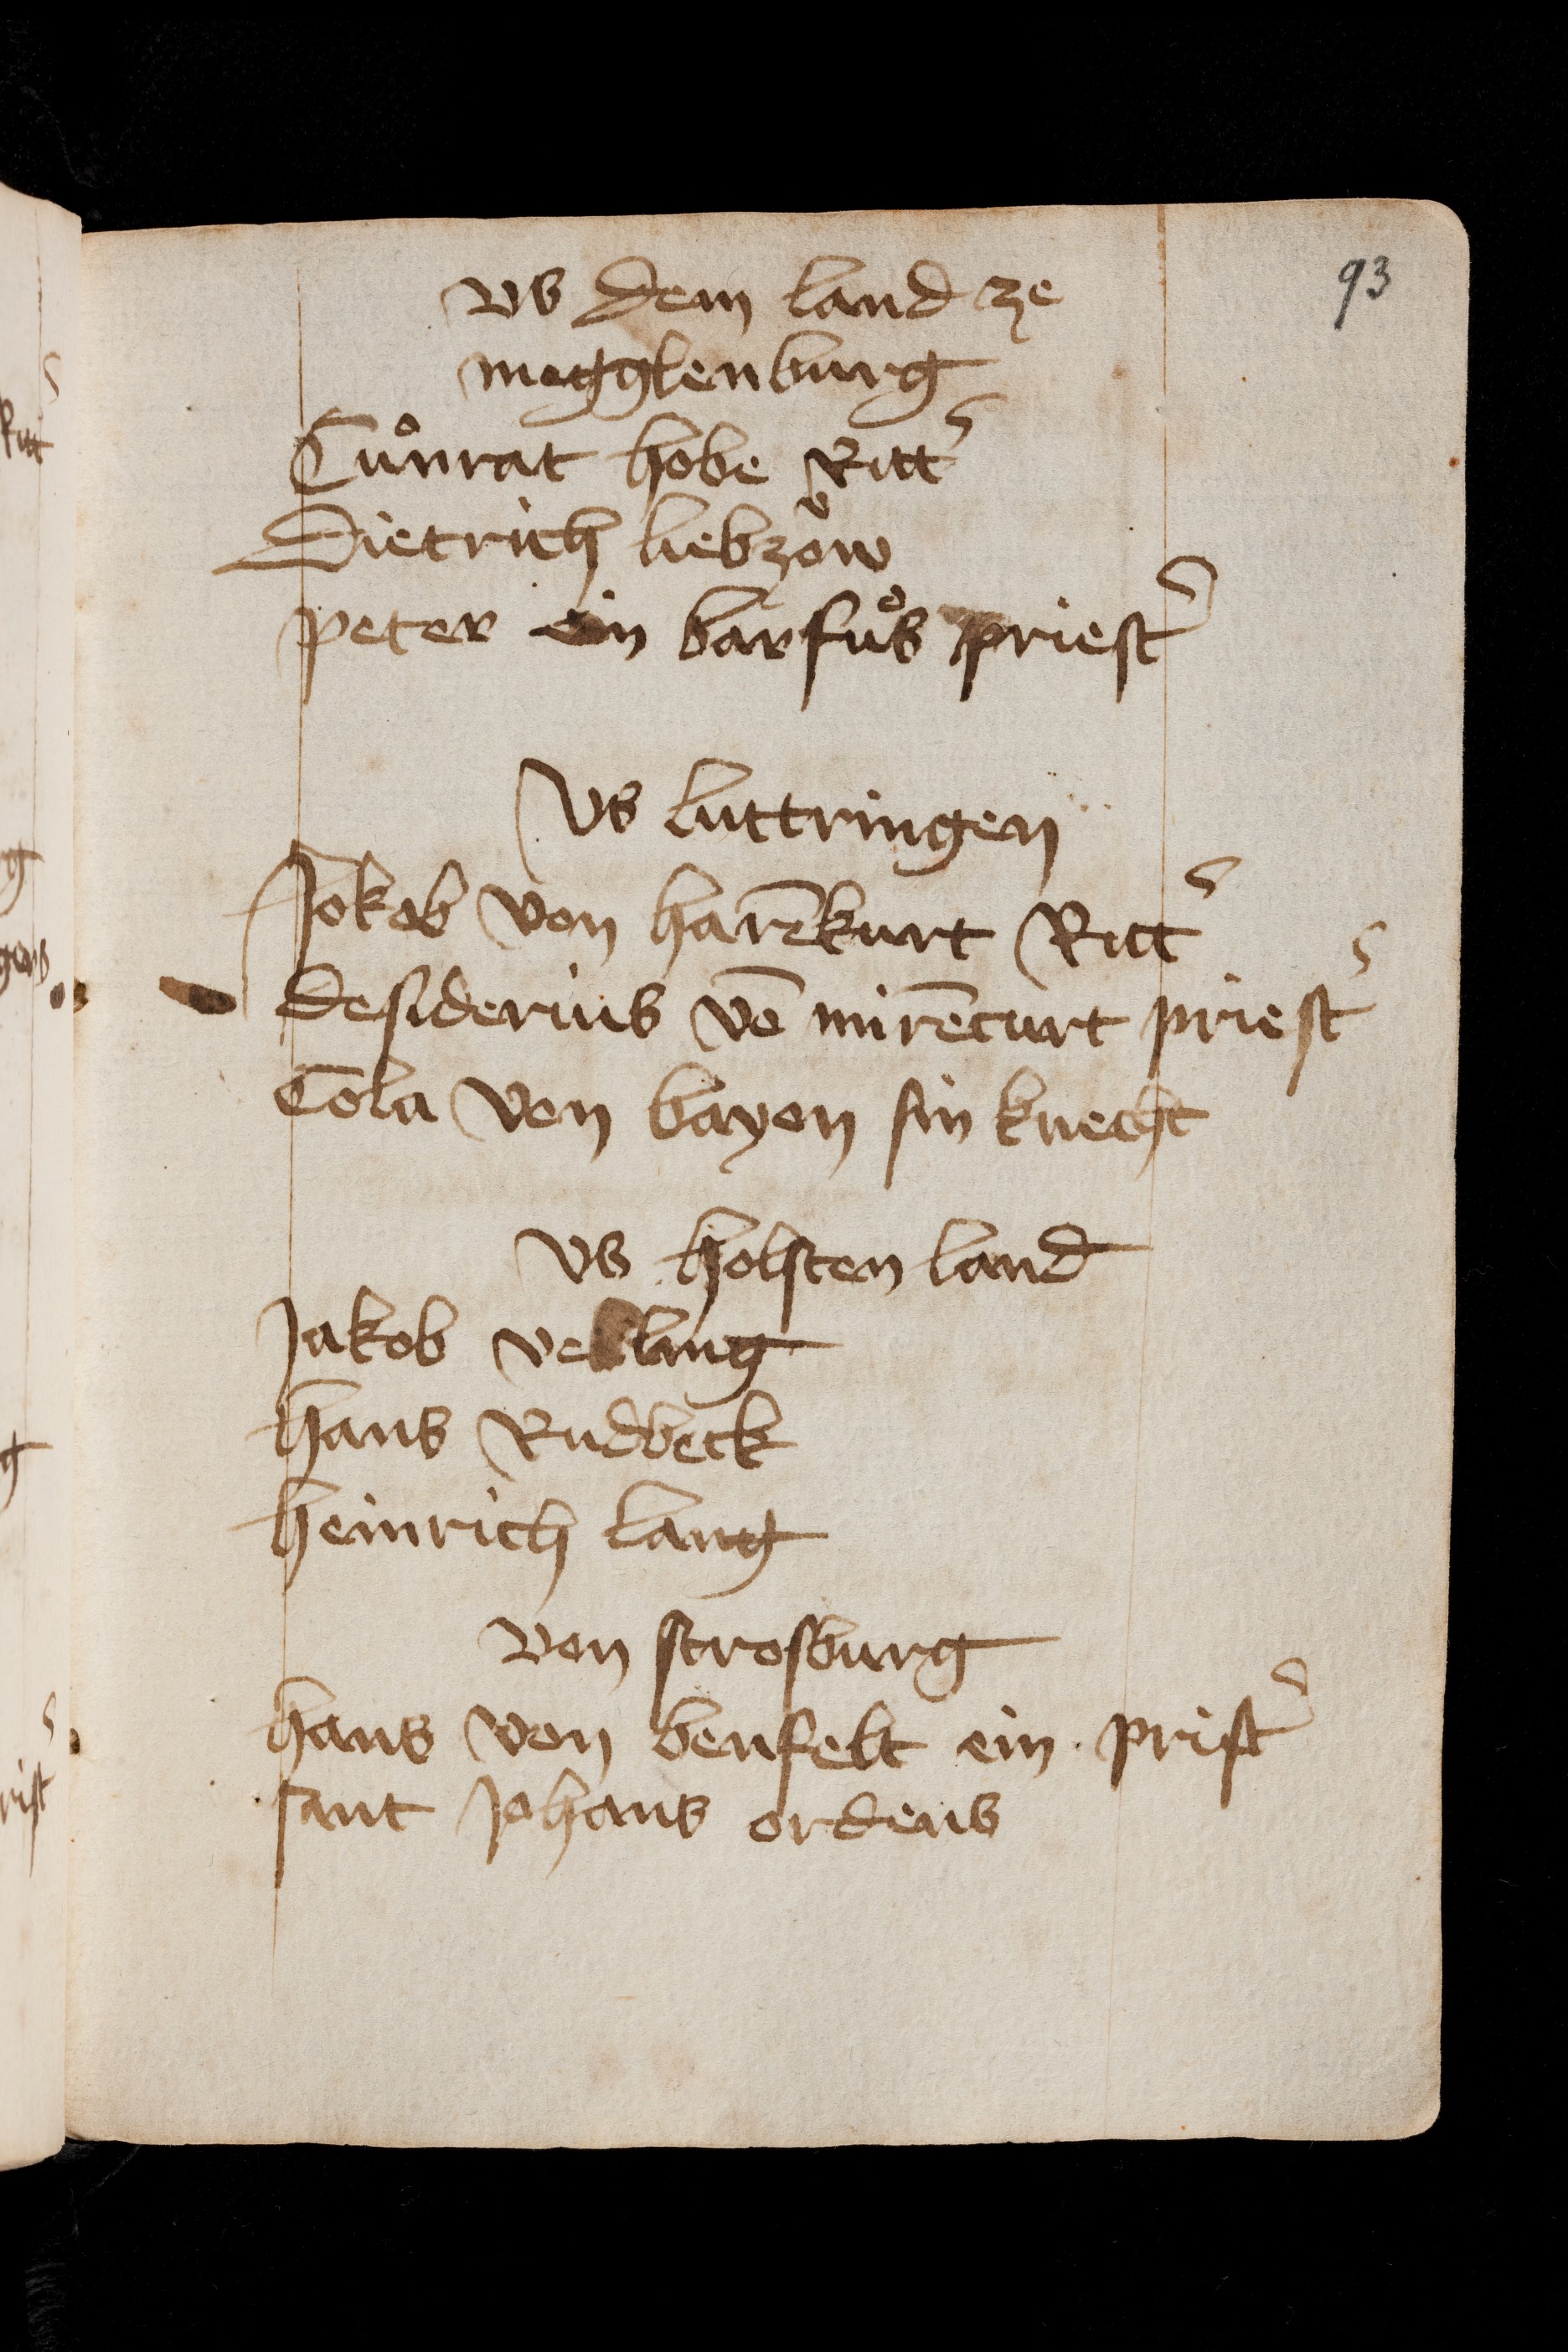 93
vs dem land ze
megglenburg
Cuͦnrat hobe Ritt᷑
Dietrich liebzoͮw
peter ein barfuͤs priest᷑
Vs luttringen
Jokob von harēkurt Ritt᷑
desiderius vō mirēcurt priest᷑
Cola von bayon sin knecht
vs holsten land
Jakob
hans Rudbeck
heinrich lang
von strosburg
hans von benfelt ein prist᷑
sant Johans ordens